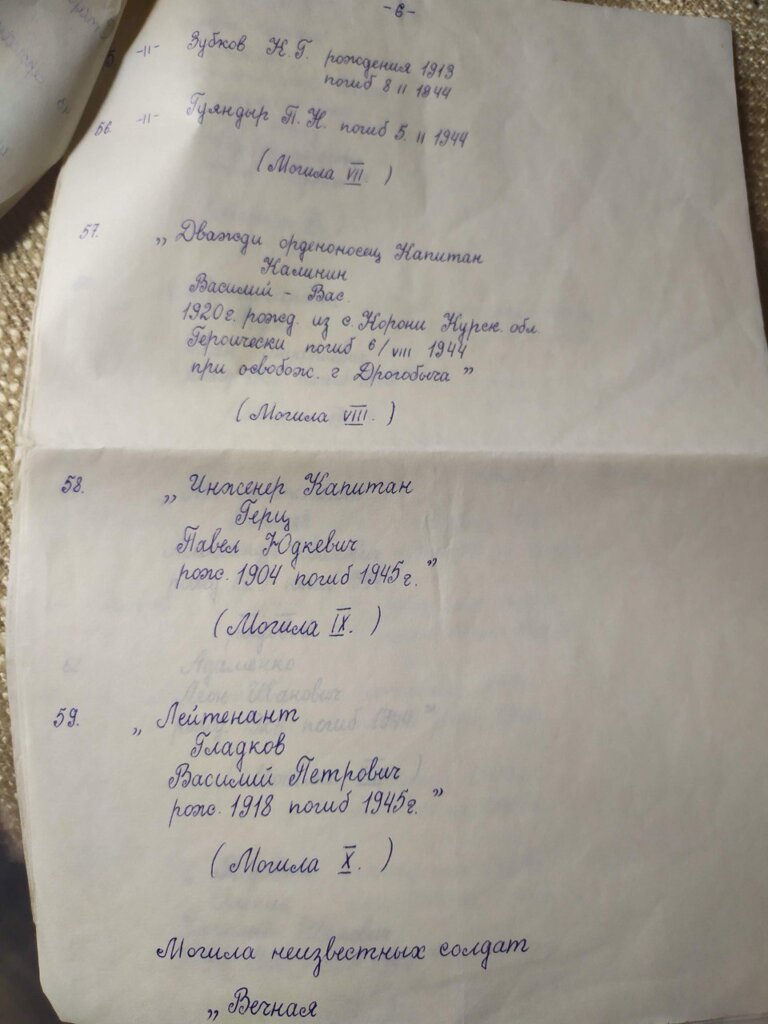 -6-
-"- Зубков К.Г. рождения 1913
погиб 8 II 1944
56. -"- Гуяндыр П.Н. погиб 5. II 1944
(Могила VII)
57. „Дважди орденоносец Капитан
Калинин
Василий - Вас.
1920г. рожд. из с. Корони Курск. обл.
Героически погиб 6/VIII 1944
при освобож. г Дрогобыча"
(Могила VIII.)
58. „Инженер Капитан
Герц
Павел Юдкевич
рож. 1904 погиб 1945г."
(Могила IX.)
59. „Лейтенант
Гладков
Василий Петрович
рож. 1918 погиб 1945г."
(Могила X.)
Могила неизвестных солдат
„Вечная